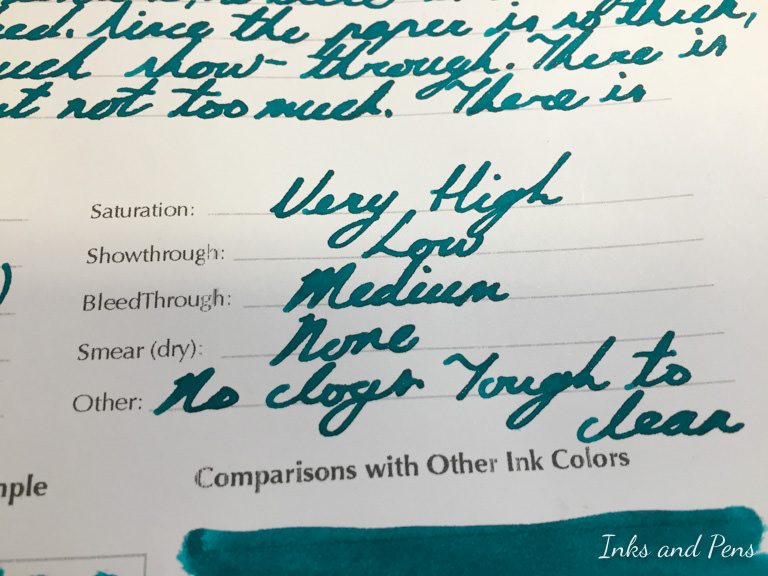 Since the paper is so thick,
show-through. There is
not too much. There is
Saturation: Very High
Showthrough: Low
BleedThrough: Medium
Smear (dry): None
Other: No clogs Tough to
clean
Comparisons with Other Ink Colors
Inks and Pens